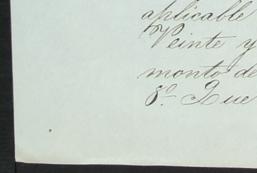 aplicable
Veinte y
monto de
8º Que